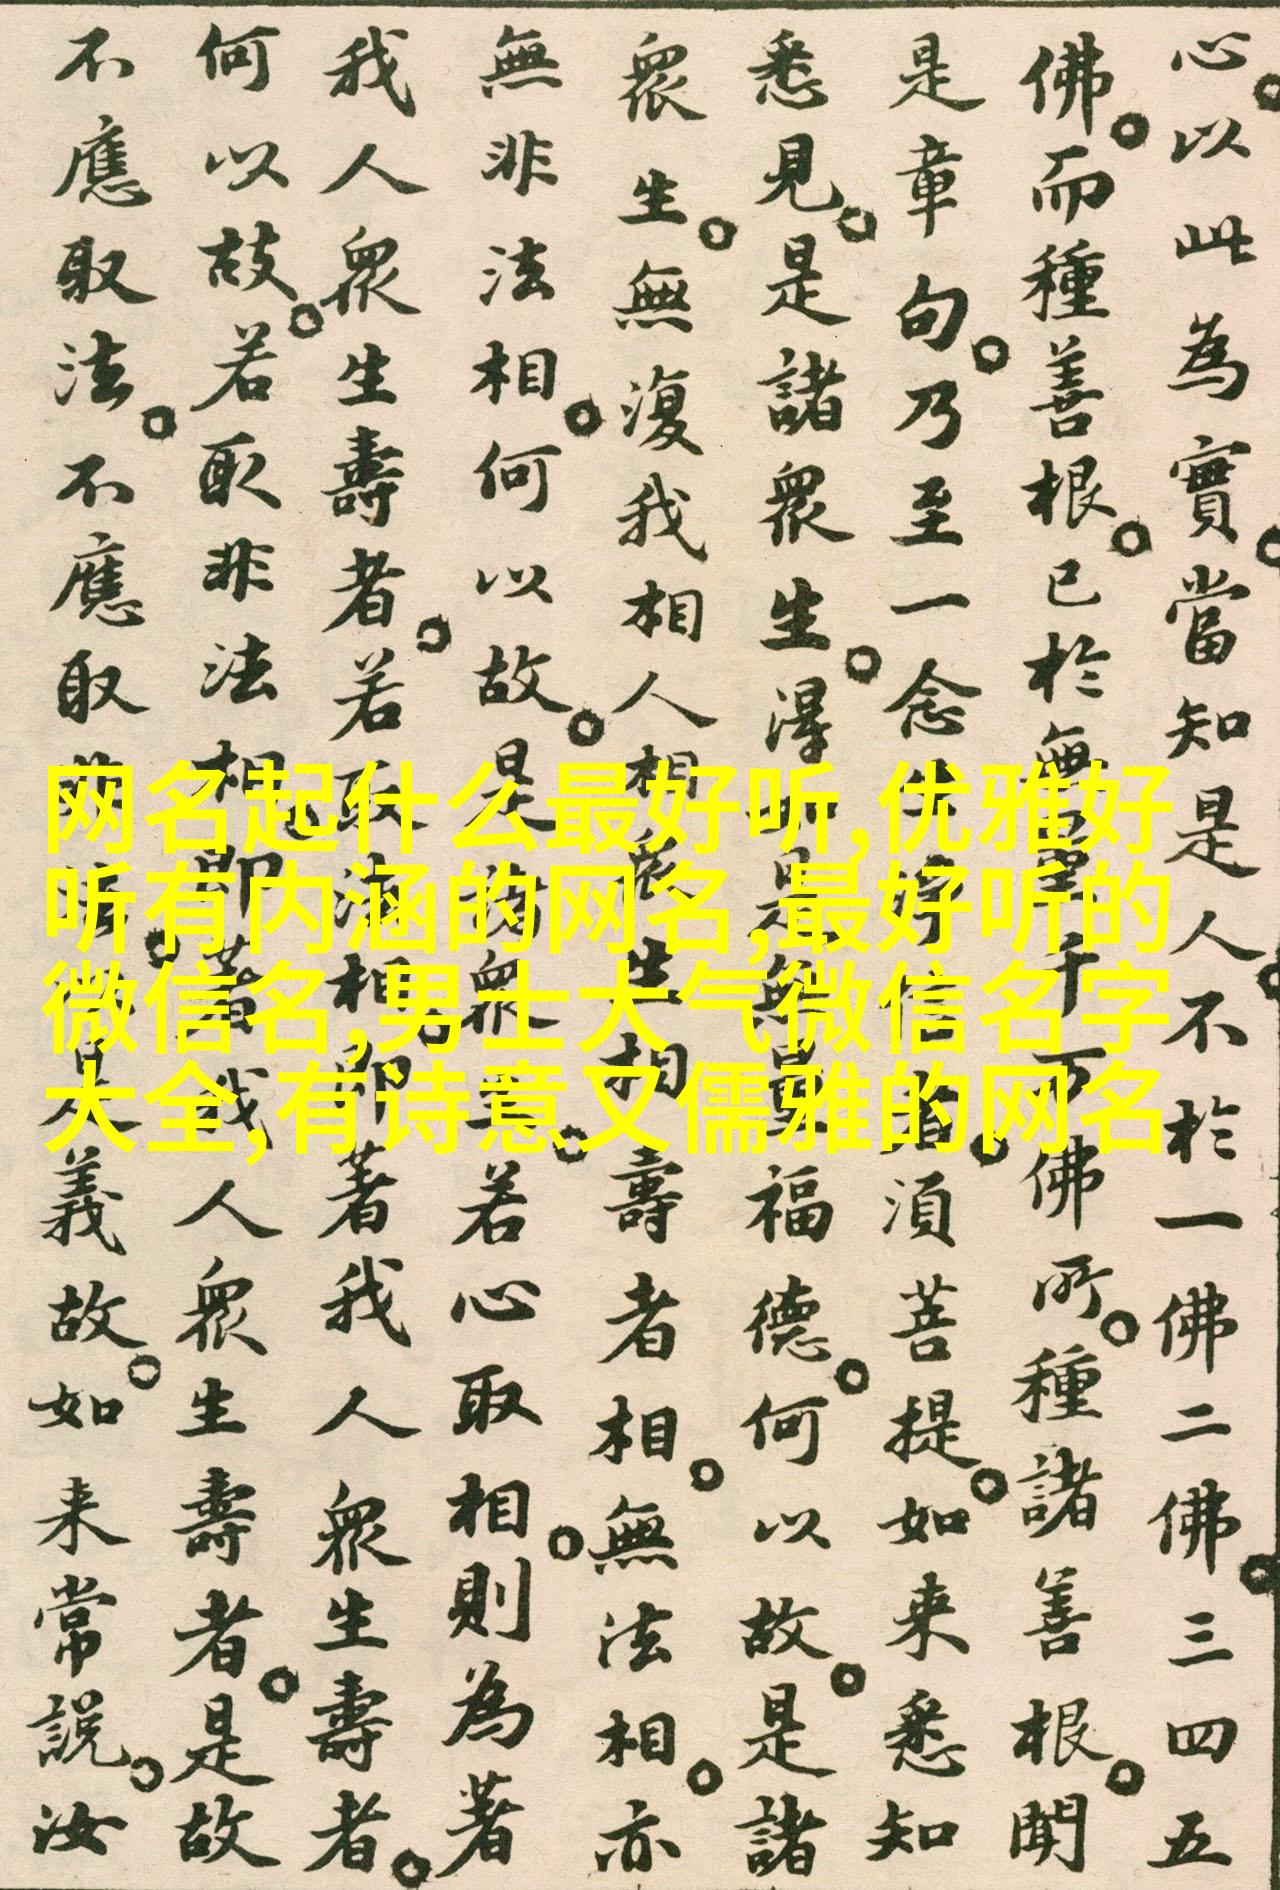 心。以此為實。當知是人。不於一佛二佛。三四五
佛。而種善根。已於無量千万佛所。種諸善根。聞
是章句。乃至一念生淨信者。須菩提。如来悉知
悉見。是諸衆生。得如是無量福德。何以故。是諸
衆生。無復我相人相衆生相壽者相。無法相。亦
無非法相。何以故。是諸衆生。若心取相。則為著
我人衆生壽者。若取法相。即著我人衆生壽者。
何以故。若取非法相。即著我人衆生壽者。是故
不應取法。不應取非法。以是義故。如来常說。汝
网名起什么最好听,优雅好
听有内涵的网名,最好听的
微信名,男士大气微信名字
大全,有诗意又儒雅的网名